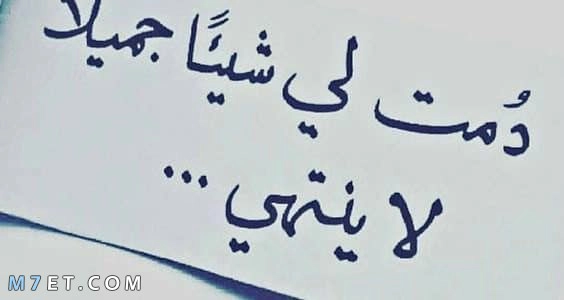 دُمت لي شيئًا جميلًا
لا ينتهي...
M7ET.COM